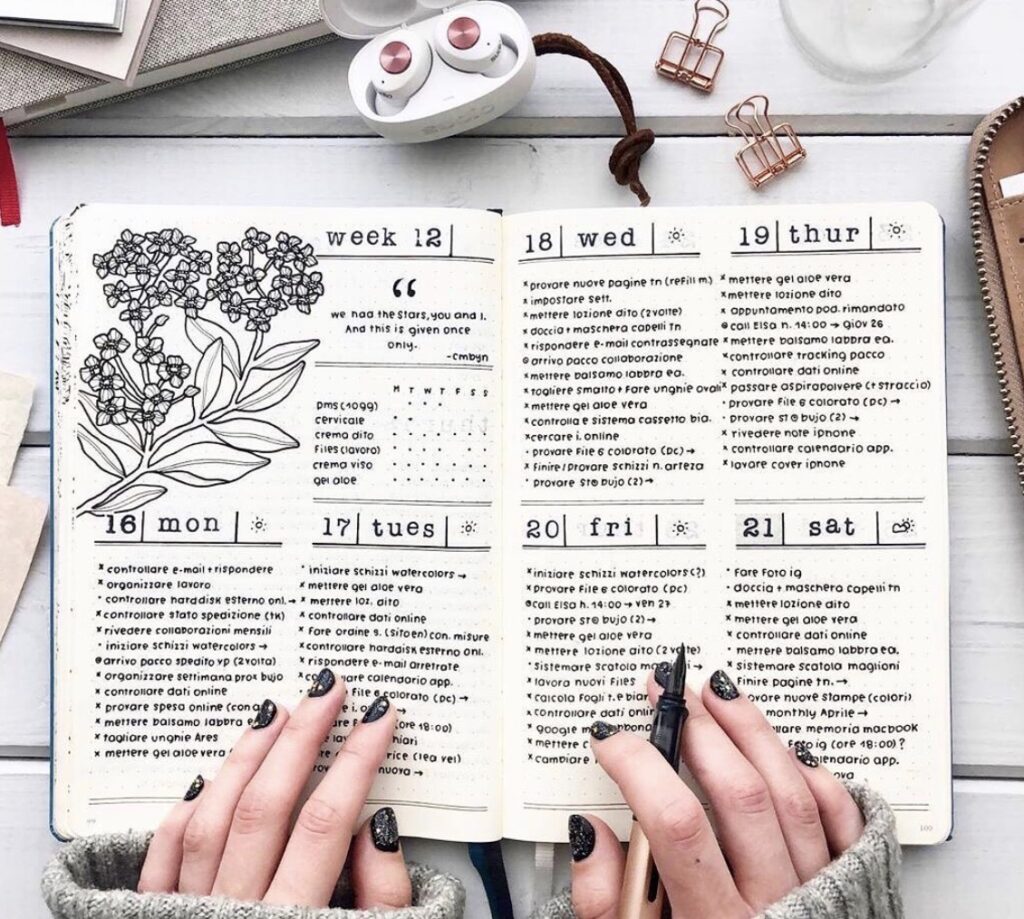 week 12
“
we had the stars, you and I.
And this is given once
only.
-Cmbyn
M T W T F S S
pms (1099)
cervicale
crema dito
files (lavoro)
crema viso
gel aloe
16 mon
x controllare e-mail + rispondere
x organizzare lavoro
· controllare harddisk esterno onl. →
x controllare stato spedizione (tk)
x rivedere collaborazioni mensili
· iniziare schizzi watercolors →
@ arrivo pacco spedito vp (2 volta)
x organizzare settimana pros bujo
x controllare dati online
x provare spesa online
x mettere balsamo labbra
x tagliare unghie Ares
x mettere gel aloe vera
17 tues
· iniziare schizzi watercolors →
x mettere gel aloe vera
x mettere loz. dito
x controllare dati online
x fare ordine s. (sito en) con. misure
x controllare hardisk esterno onl.
x rispondere e-mail arretrate
calendario app.
file 6 colorato (pc) →
(ore 18:00)
(lea vel)
nuova →
18 wed
x provare nuove pagine tn (refill m.)
x impostare sett.
x mettere lozione dito (2 volte)
x doccia + maschera capelli tn
x rispondere e-mail contrassegnate
@ arrivo pacco collaborazione
x mettere balsamo labbra ea.
x togliere smalto + fare unghie ovali
x mettere gel aloe vera
x controlla e sistema cassetto bia.
x cercare i. online
· provare file 6 colorato (pc) →
x finire/provare schizzi n. arteza
· provare st@ bujo (2) →
19 thur
x mettere gel aloe vera
x mettere lozione dito
x appuntamento pod. rimandato
@ call Elsa h. 14:00 → giov 26
x mettere balsamo labbra ea.
x controllare tracking pacco
x controllare dati online
x passare aspirapolvere (+ straccio)
· provare file 6 colorato (pc) →
· provare st@ bujo (2) →
x rivedere note iphone
x controllare calendario app.
x lavare cover iphone
20 fri
x iniziare schizzi watercolors (?)
x provare file 6 colorato (pc)
@ call Elsa h. 14:00 → ven 27
· provare st@ bujo (2) →
x mettere gel aloe vera
x mettere lozione dito (2 volte)
· sistemare scatola →
x lavora nuovi files
x calcola fogli t. e
x controllare dati
x google
x mettere
x cambiare
21 sat
· fare foto ig
· doccia + maschera capelli tn
x mettere lozione dito
x mettere gel aloe vera
x controllare dati online
· mettere balsamo labbra ea.
x sistemare scatola maglioni
finire pagine tn. →
nuove stampe (colori)
monthly Aprile →
memoria macbook
foto ig (ore 18:00) ?
app.
100